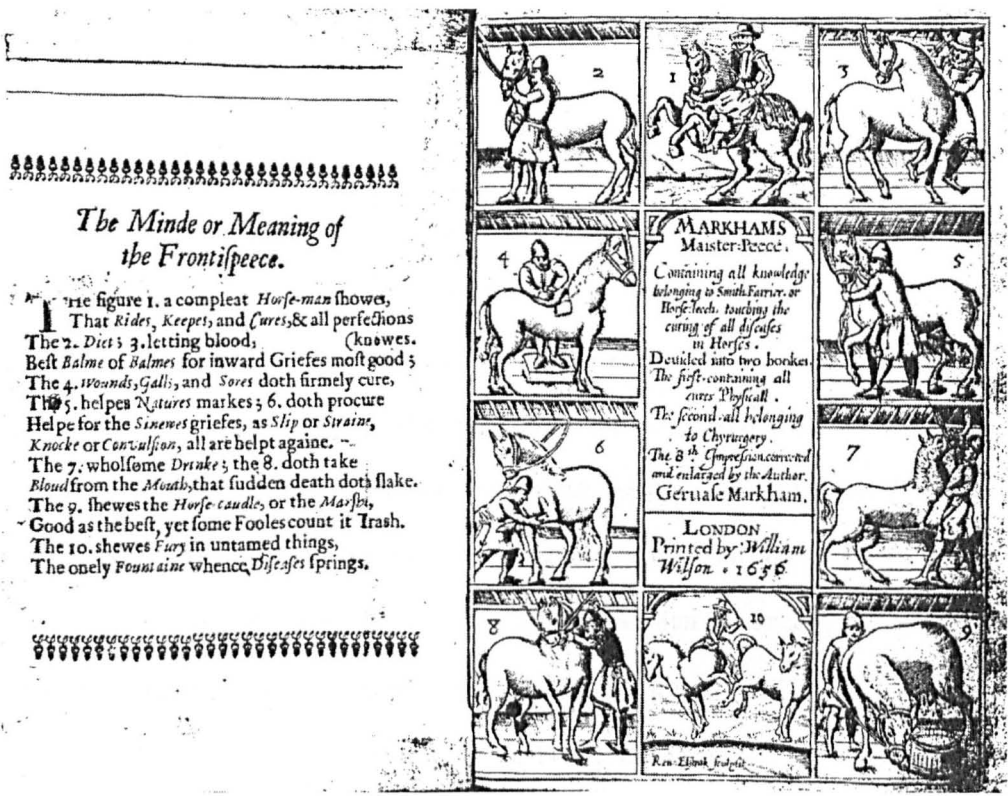 The Minde or Meaning of
the Frontiſpeece.
THe figure 1. a compleat Horſe-man ſhowes,
That Rides, Keepes, and Cures, & all perfections
The 2. Diet; 3. letting blood, (knowes.
Beſt Balme of Balmes for inward Griefes moſt good;
The 4. Wounds, Galls, and Sores doth firmely cure,
The 5. helpes Natures markes; 6. doth procure
Helpe for the Sinewes griefes, as Slip or Straine,
Knocke or Convulſion, all are helpt againe.
The 7. wholſome Drinke; the 8. doth take
Bloud from the Mouth, that ſudden death doth ſlake.
The 9. ſhewes the Horſe-caudle, or the Maſh,
Good as the beſt, yet ſome Fooles count it Traſh.
The 10. shewes Fury in untamed things,
The onely Fountaine whence Diſeaſes ſprings.
2
1
3
4
MARKHAMS
Maister-Peece.
Containing all knowledge
belonging to Smith, Farrier, or
Horſe-leech, touching the
curing of all diſeaſes
in Horſes.
Devided into two bookes.
The firſt containing all
cures Phyſicall.
The second all belonging
to Chyrurgery.
The 8th Impreſſion, corrected
and enlarged by the Author.
Gervaſe Markham.
LONDON
Printed by William
Wilſon. 1656
5
6
7
8
10
9
Ren: Elſtrak ſculpſit